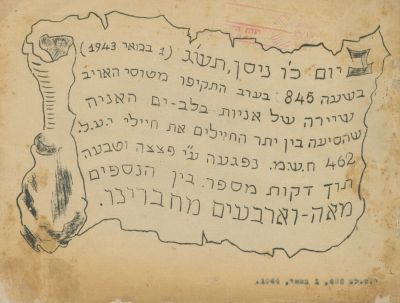 ביום כ'ו ניסן, תש'ג (1 במאי 1943)
בשעה 845 בערב התקיפו מטוסי האויב
שיירה של אניות בלב-ים האניה
שהסיעה בין יתר החיילים את חיילי י.ע.ל.
462 ח.ש.מ. נפגעה ע"י פצצה וטבעה
תוך דקות מספר. בין הנספים
מאה-וארבעים מחברינו.
462, 1 במאי, 1944.